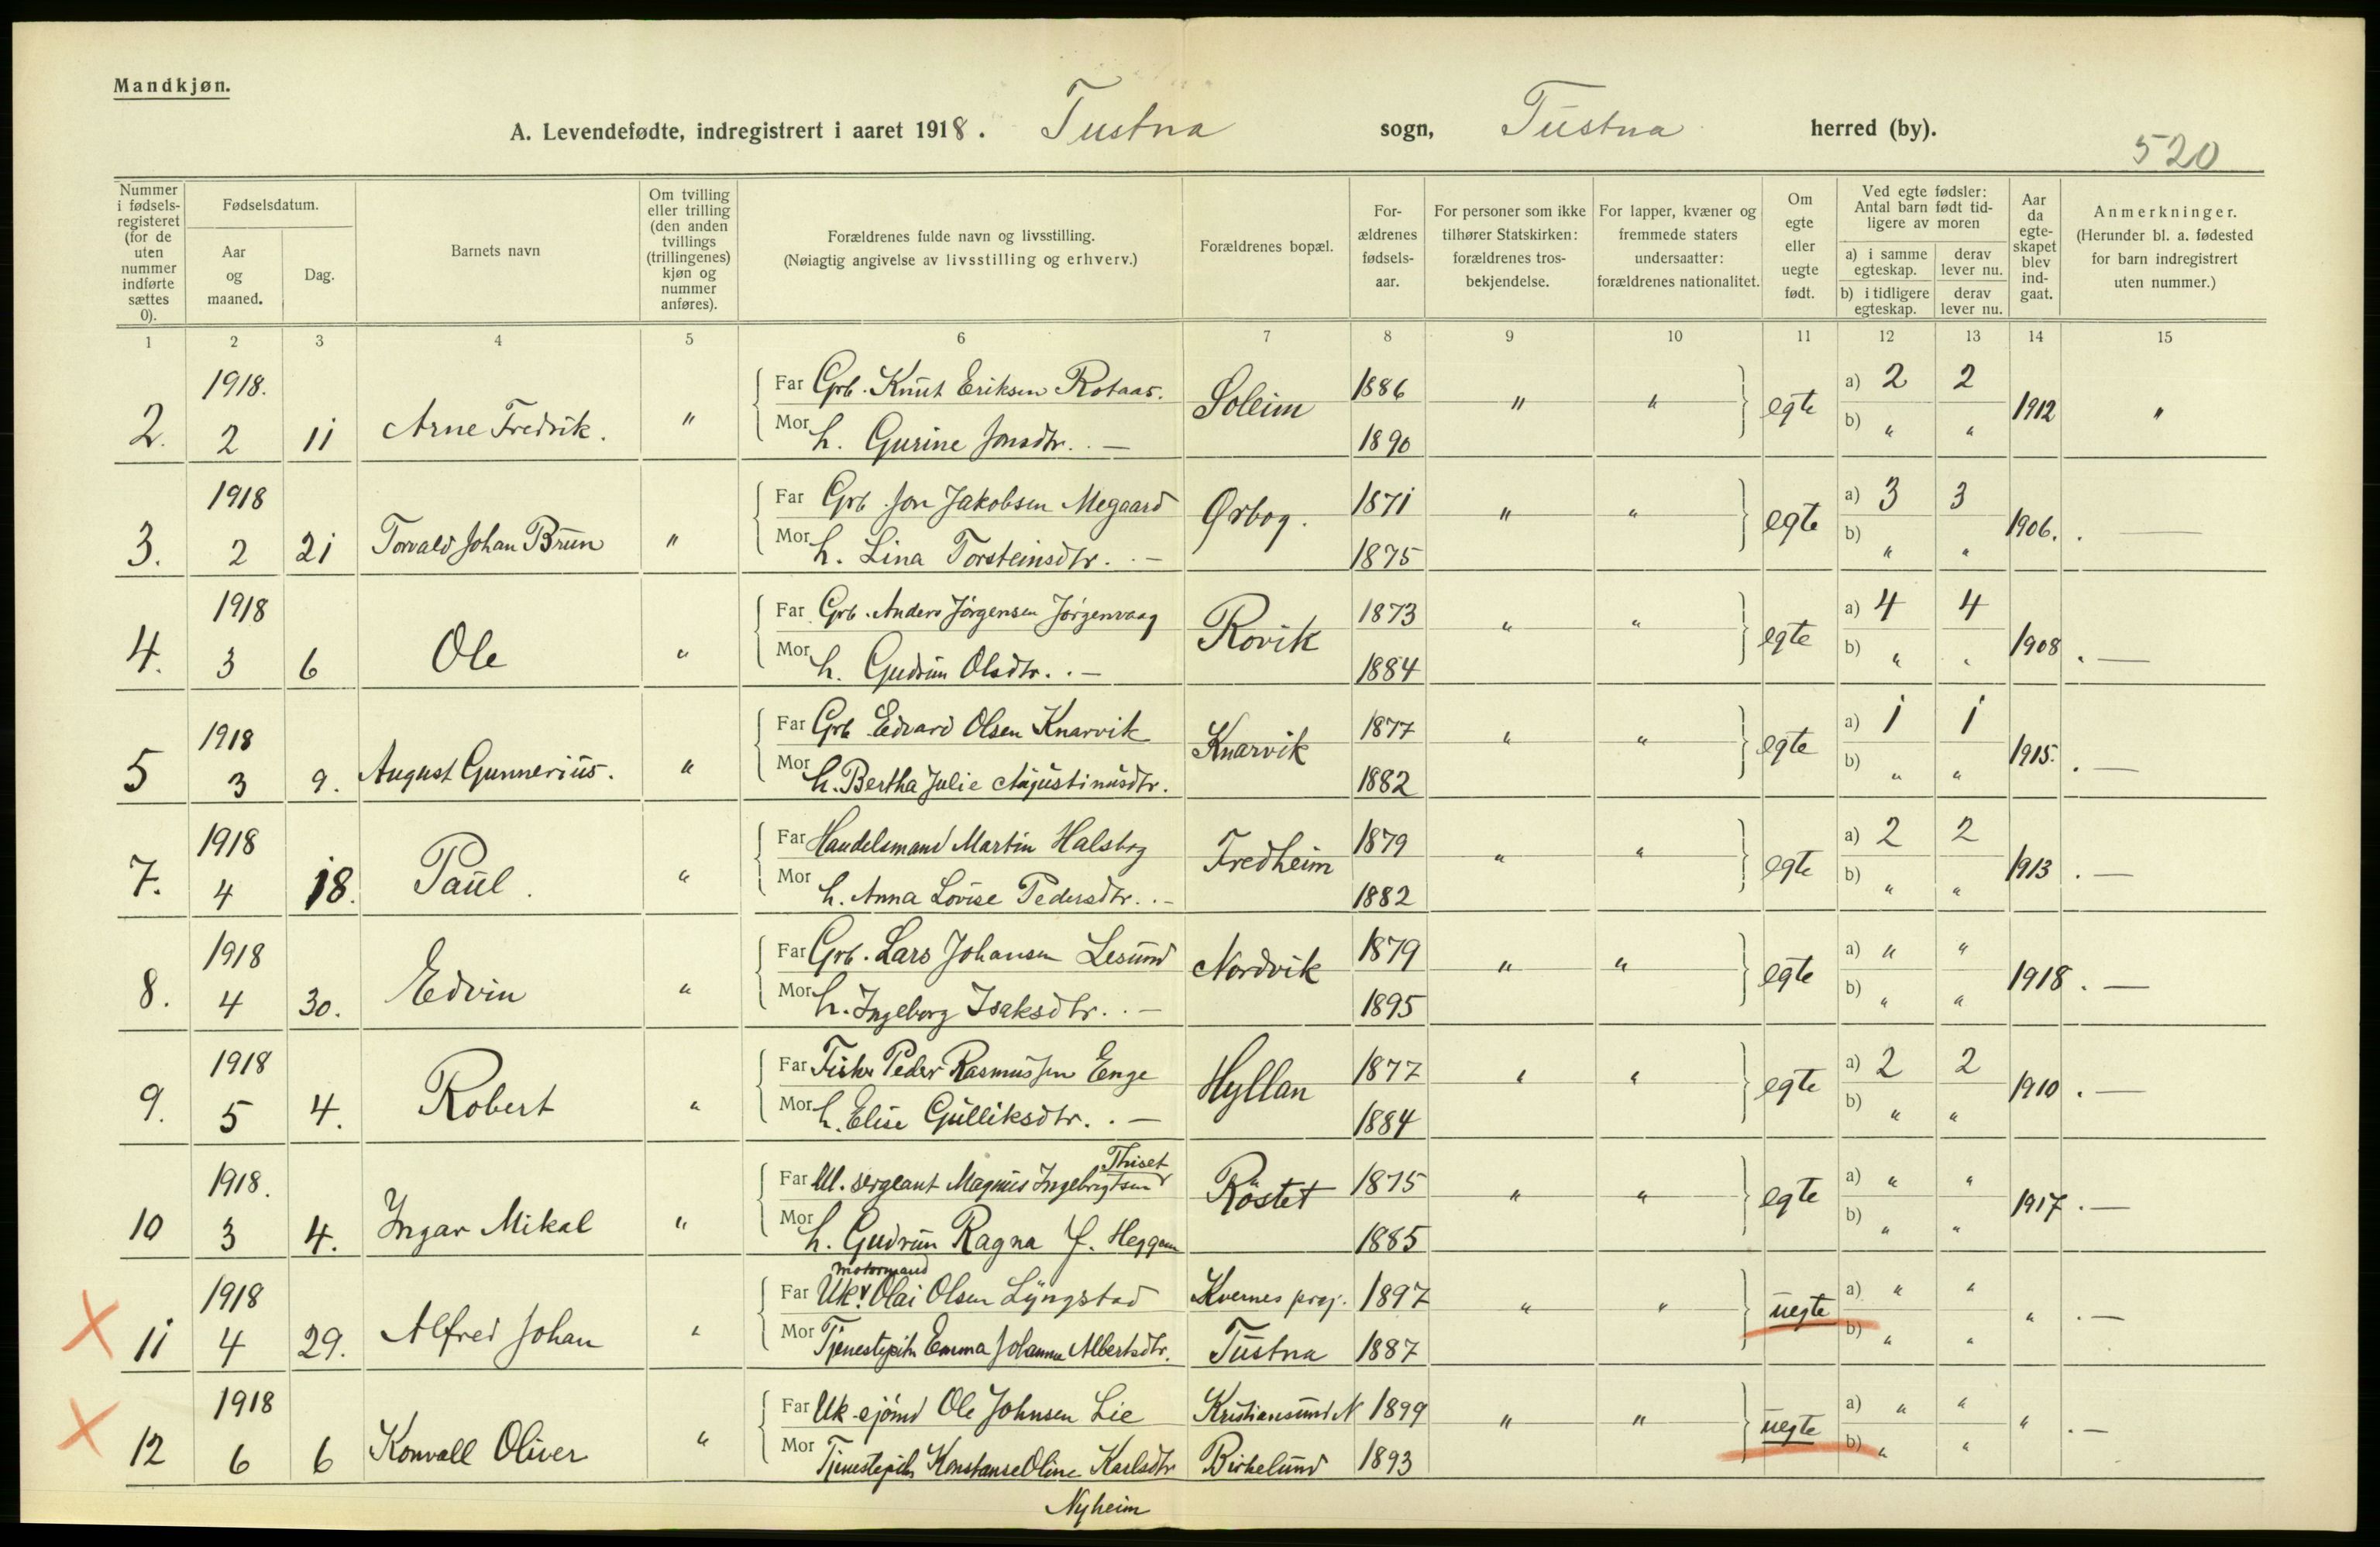 Mandkjøn.
A. Levendefødte, indregistrert i aaret 1918. Tustna sogn, Tustna herred (by).
520
Nummer i fødsels-registeret (for de uten nummer indførte sættes 0).
Fødselsdatum.
Aar og maaned.
Dag.
Barnets navn
Om tvilling eller trilling (den anden tvillings (trillingenes) kjøn og nummer anføres).
Forældrenes fulde navn og livsstilling.
(Nøiagtig angivelse av livsstilling og erhverv.)
Forældrenes bopæl.
For-ældrenes fødsels-aar.
For personer som ikke tilhører Statskirken: forældrenes tros-bekjendelse.
For lapper, kvæner og fremmede staters undersaatter: forældrenes nationalitet.
Om egte eller uegte født.
Ved egte fødsler: Antal barn født tid-ligere av moren
a) i samme egteskap.
derav lever nu.
b) i tidligere egteskap.
derav lever nu.
Aar da egte-skapet blev ind-gaat.
Anmerkninger.
(Herunder bl. a. fødested for barn indregistrert uten nummer.)
1 2 3 4 5 6 7 8 9 10 11 12 13 14 15
1918. Far Grb. Knut Eriksen Rotaas. Soleim 1886 " " egte a) 2 2 1912 "
2. 2 11 Arne Fredrik. " Mor h. Gurine Jonsdtr. . — 1890 b) " "
1918 Far Grb Jon Jakobsen Megaard Ørbog. 1871 " " egte a) 3 3 1906. . —
3. 2 21 Torvald Johan Brun " Mor h. Lina Torsteinsdtr. . — 1875 b) " "
1918 Far Grb. Anders Jørgensen Jørgenvaag Rovik 1873 " " egte a) 4 4 1908 . —
4. 3 6 Ole " Mor h. Gudrun Olsdtr. . — 1884 b) " "
1918 Far Grb Edvard Olsen Knarvik Knarvik 1877 " " egte a) 1 1 1915. . —
5 3 9. August Gunnerius. " Mor h. Bertha Julie Augustinusdtr. 1882 b) " "
1918 Far Handelsmand Martin Halsbog Fredheim 1879 " " egte a) 2 2 1913 . —
7. 4 18. Paul. " Mor h. Anna Lovise Pedersdtr. . - 1882 b) " "
1918 Far Grb. Lars Johansen Lesund Nordvik 1879 " " egte a) " " 1918 . —
8. 4 30. Edvin " Mor h. Ingeborg Isaksdtr. . — 1895 b) " "
1918 Far Fisker Peder Rasmussen Enge Hyllan 1877 " " egte a) 2 2 1910 . —
9. 5 4. Robert " Mor h. Elise Gulliksdtr. . — 1884 b) " "
Thiset
1918. Far Ul. sergeant Magnus Ingebrigtsen Røstet 1875 " " egte a) " " 1917 . —
10 3 4. Ingar Mikal " Mor h. Gudrun Ragna f. Heggem 1885 b) " "
motormand
1918 Far Uk. Olai Olsen Lyngstad Kvernes prgj. 1897 " " uegte a) " " " . —
11 4 29. Alfred Johan " Mor Tjenestepike Emma Johanne Albertsdtr. Tustna 1887 b) " "
1918 Far Uk sjømd Ole Johnsen Lie Kristiansund N 1899 " " uegte a) " " " . —
12 6 6 Konvall Oliver " Mor Tjenestepike Konstanse Oline Karlsdtr Birkelund 1893 b) " "
Nyheim